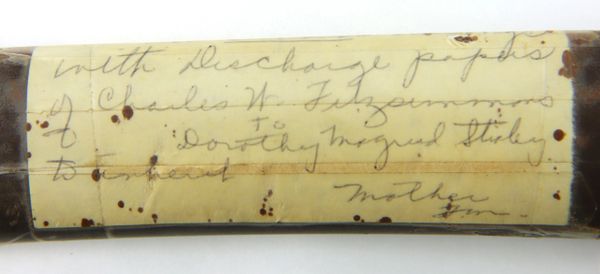 with Discharge papers
of Charles W. Fitzsimmons
To
Dorothy Magrud
to inherit
Mother